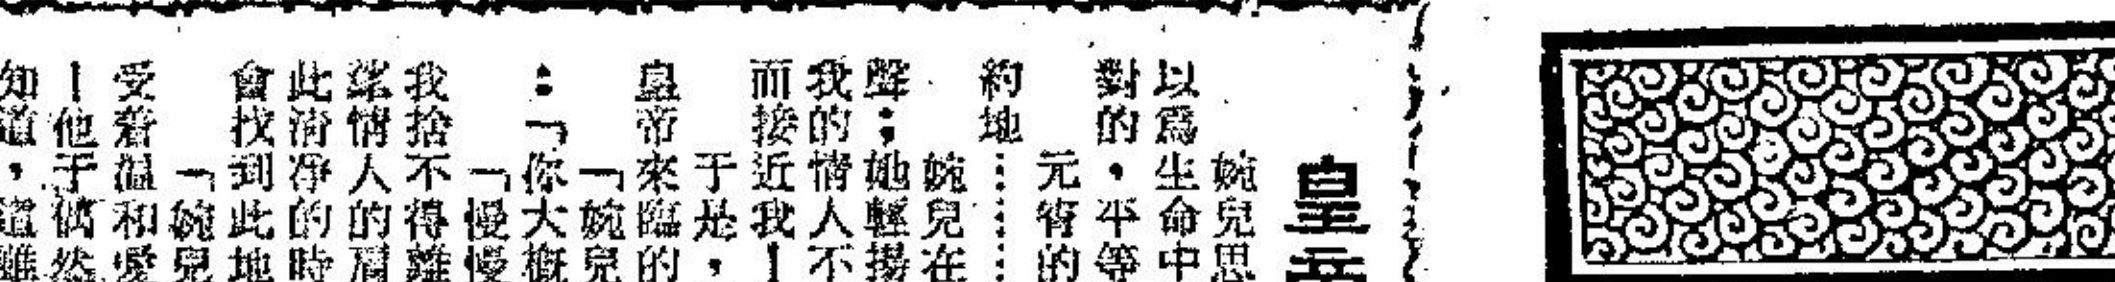 皇
婉兒思
以爲生命中
對的，平等
元宵的
約地……
婉兒在
聲；她輕揚
我的情人不
而接近我！
于是，
皇帝來臨的
「婉兒
：「你大概
「慢慢
我捨不得離
情人的肩
此清净的時
會找到此地
「婉兒
受着溫和愛
！他于偶然
知道，這雖